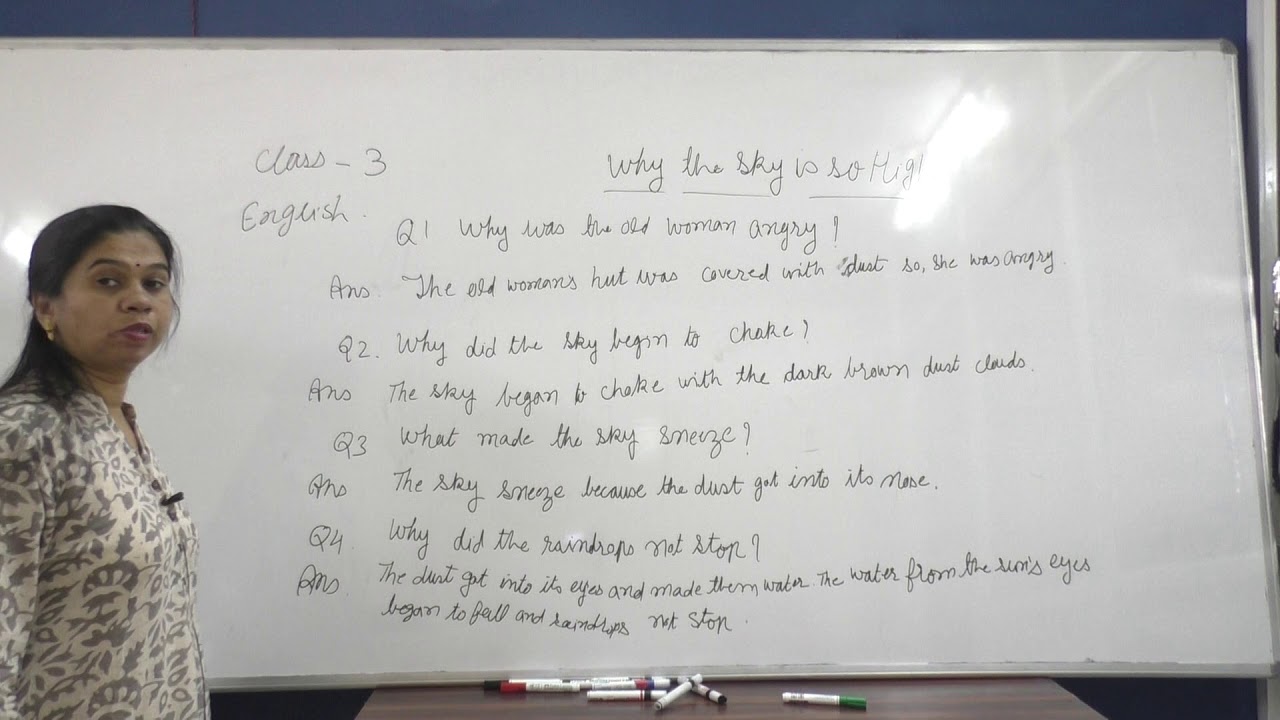 Class - 3
Why the sky is so Hig
English.
Q1 Why was the old woman angry?
Ans. The old woman's hut was covered with dust so, she was angry.
Q2. Why did the sky begin to choke?
Ans The sky began to choke with the dark brown dust clouds.
Q3 What made the sky sneeze?
Ans The sky sneeze because the dust got into its nose.
Q4. Why did the raindrops not stop?
Ans. The dust got into its eyes and made them water. The water from the sun's eyes
began to fall and raindrops not stop.